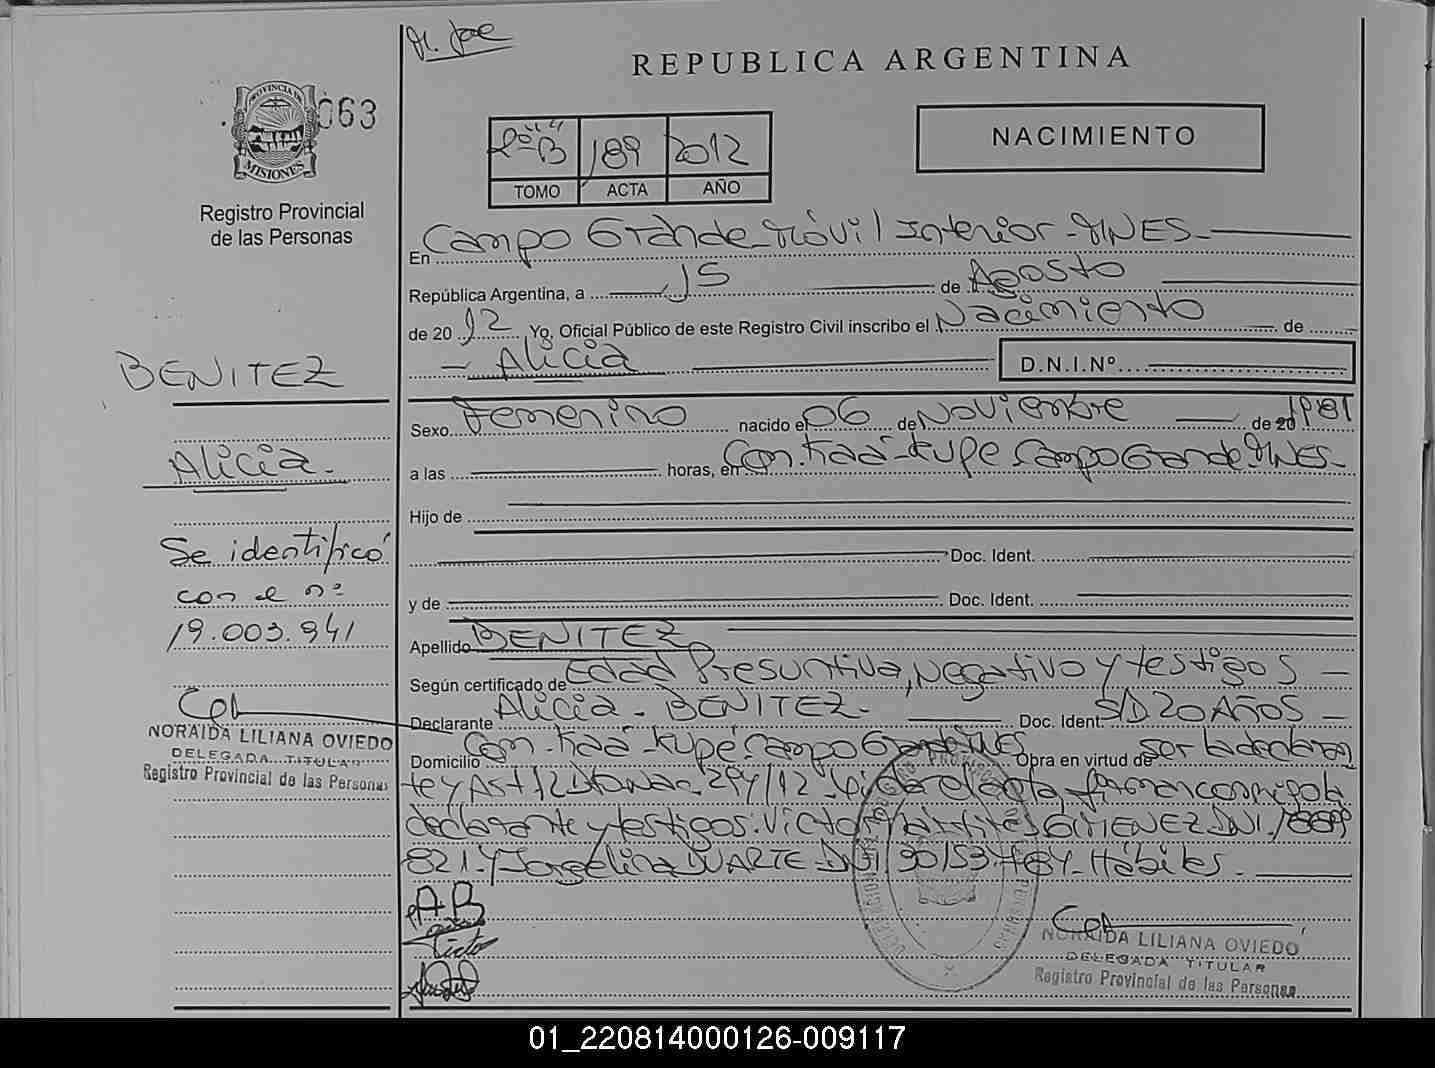 REPUBLICA ARGENTINA
PROVINCIA DE
MISIONES
063
Registro Provincial
de las Personas
NACIMIENTO
2º "B" 189 2012
TOMO ACTA AÑO
En Campo Grande - Móvil Interior - MNES -
República Argentina, a 15 de Agosto
de 2012 Yo, Oficial Público de este Registro Civil inscribo el Nacimiento de
- Alicia
D.N.I.Nº
Sexo Femenino nacido el 06 de Noviembre de 20 1981
a las horas, en Com. Kaá-Kupe Campo Grande MNES -
Hijo de
Doc. Ident.
y de Doc. Ident.
Apellido BENITEZ
Según certificado de Edad Presuntiva, Negativo y testigos -
Declarante Alicia - BENITEZ - Doc. Ident. S/D 20 AÑOS -
Domicilio Com. Kaá-Kupé Campo Grande MNES Obra en virtud de ser la declaran
te y 294/12 declarante y testigos: Victor GIMENEZ DNI.
821 y Jorgelina DUARTE - DNI 30153484 - Hábiles -
BENITEZ
Alicia -
Se identificó
con el nº
19.003.941
NORAIDA LILIANA OVIEDO
DELEGADA TITULAR
Registro Provincial de las Personas
AB
NORAIDA LILIANA OVIEDO
DELEGADA TITULAR
Registro Provincial de las Personas
01_220814000126-009117